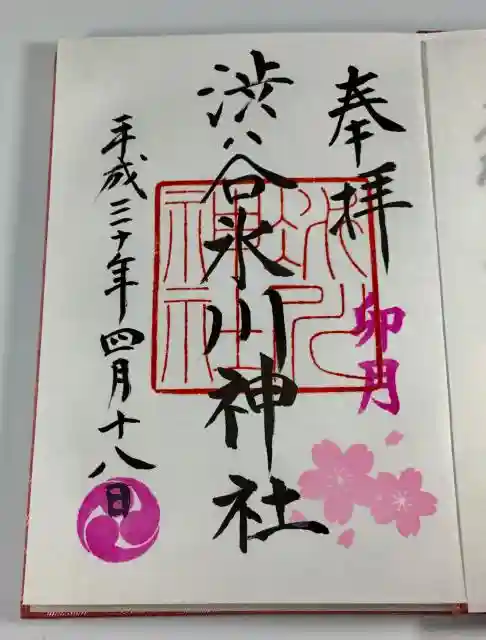 奉拝
卯月
渋谷氷川神社
氷川神社
平成三十年四月十八日